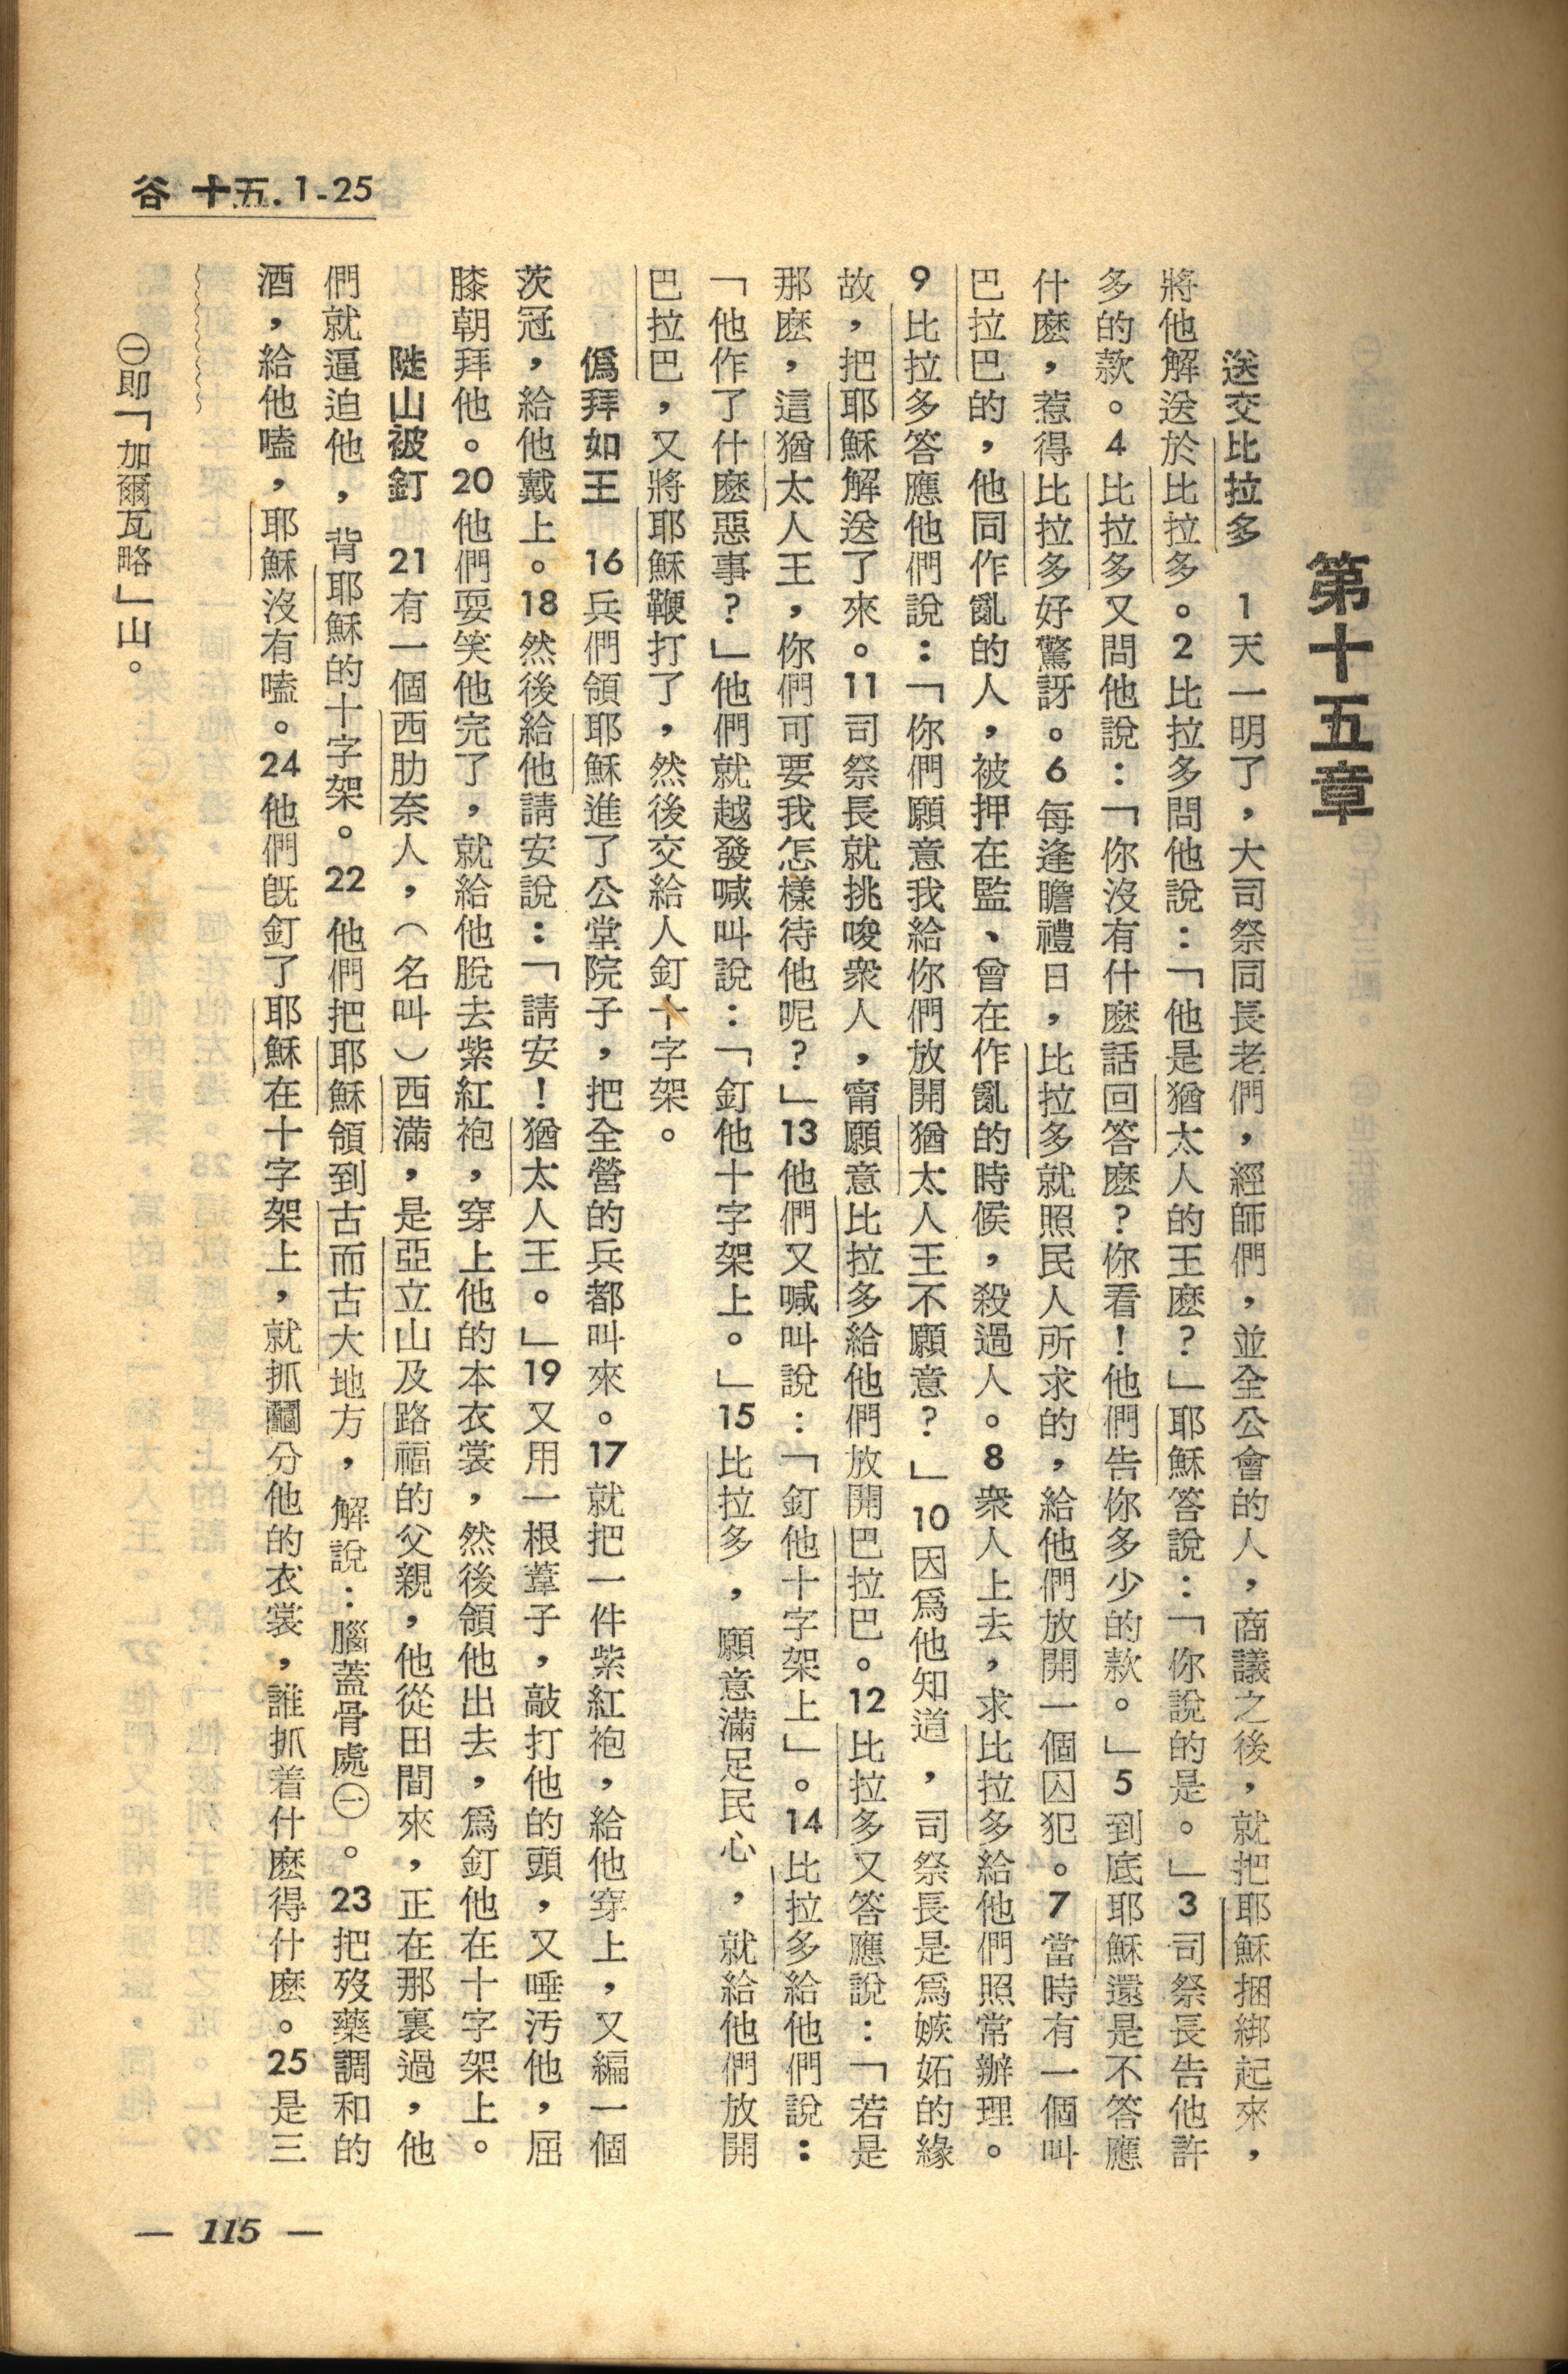 谷 十五. 1-25
第十五章
送交比拉多 1天一明了，大司祭同長老們，經師們，並全公會的人，商議之後，就把耶穌捆綁起來，
將他解送於比拉多。2比拉多問他說：「他是猶太人的王麽？」耶穌答說：「你說的是。」3司祭長告他許
多的款。4比拉多又問他說：「你沒有什麽話回答麽？你看！他們告你多少的款。」5到底耶穌還是不答應
什麽，惹得比拉多好驚訝。6每逢瞻禮日，比拉多就照民人所求的，給他們放開一個囚犯。7當時有一個叫
巴拉巴的，他同作亂的人，被押在監、曾在作亂的時候，殺過人。8衆人上去，求比拉多給他們照常辦理。
9比拉多答應他們說：「你們願意我給你們放開猶太人王不願意？」10因爲他知道，司祭長是爲嫉妬的緣
故，把耶穌解送了來。11司祭長就挑唆衆人，甯願意比拉多給他們放開巴拉巴。12比拉多又答應說：「若是
那麽，這猶太人王，你們可要我怎樣待他呢？」13他們又喊叫說：「釘他十字架上」。14比拉多給他們說：
「他作了什麽惡事？」他們就越發喊叫說：「釘他十字架上。」15比拉多，願意滿足民心，就給他們放開
巴拉巴，又將耶穌鞭打了，然後交給人釘十字架。
僞拜如王 16兵們領耶穌進了公堂院子，把全營的兵都叫來。17就把一件紫紅袍，給他穿上，又編一個
茨冠，給他戴上。18然後給他請安說：「請安！猶太人王。」19又用一根葦子，敲打他的頭，又唾汚他，屈
膝朝拜他。20他們耍笑他完了，就給他脫去紫紅袍，穿上他的本衣裳，然後領他出去，爲釘他在十字架上。
陡山被釘 21有一個西肋奈人，（名叫）西滿，是亞立山及路福的父親，他從田間來，正在那裏過，他
們就逼迫他，背耶穌的十字架。22他們把耶穌領到古而古大地方，解說：腦蓋骨處㊀。23把歿藥調和的
酒，給他嗑，耶穌沒有嗑。24他們旣釘了耶穌在十字架上，就抓鬮分他的衣裳，誰抓着什麽得什麽。25是三
㊀卽「加爾瓦略」山。
— 115 —